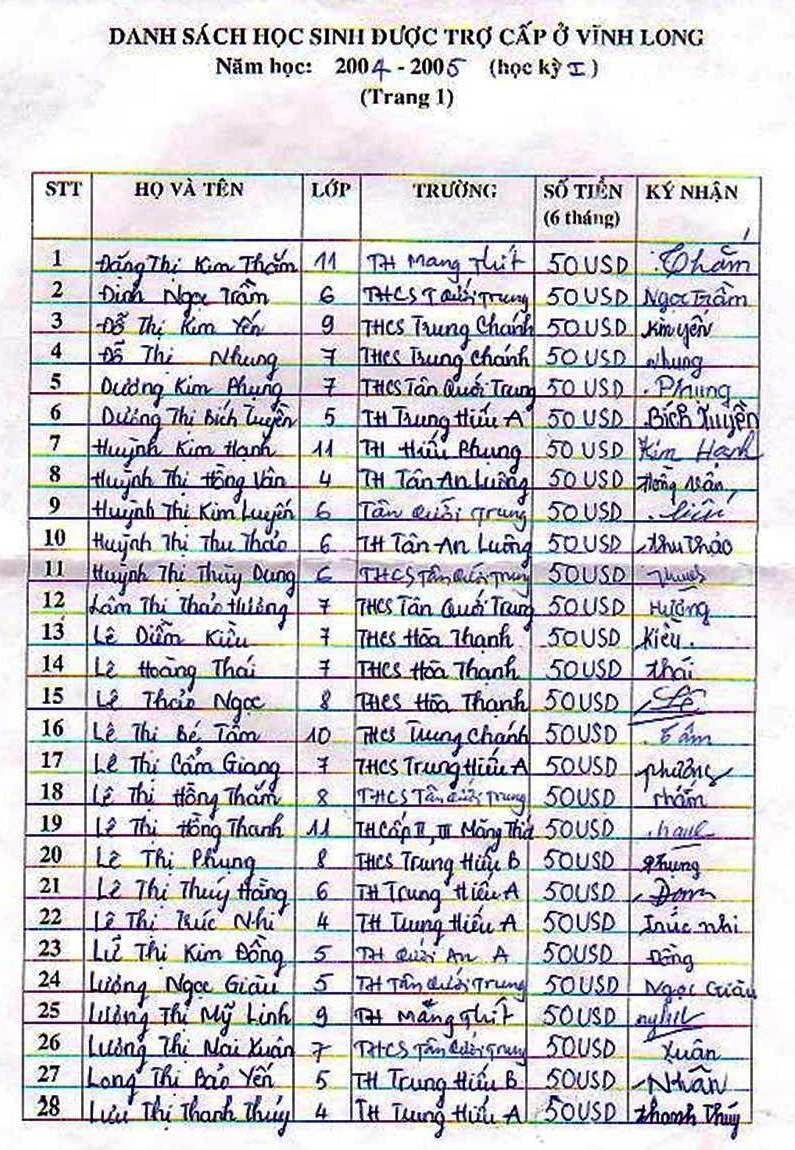 DANH SÁCH HỌC SINH ĐƯỢC TRỢ CẤP Ở VĨNH LONG
Năm học: 2004 - 2005 (học kỳ I)
(Trang 1)
STT HỌ VÀ TÊN LỚP TRƯỜNG SỐ TIỀN (6 tháng) KÝ NHẬN
1 Đặng Thị Kim Thắm 11 TH Mang Thít 50 USD Thắm
2 Đinh Ngọc Trầm 6 THCS T Quới Trung 50 USD Ngọc Trầm
3 Đỗ Thị Kim Yến 9 THCS Trung Chánh 50 USD Kim yến
4 Đỗ Thị Nhung 7 THCS Trung Chánh 50 USD Nhung
5 Dương Kim Phụng 7 THCS Tân Quới Trung 50 USD Phung
6 Dương Thị Bích Tuyền 5 TH Trung Hiếu A 50 USD Bích Tuyền
7 Huỳnh Kim Hạnh 11 TH Hiếu Phụng 50 USD Kim Hạnh
8 Huỳnh Thị Hồng Vân 4 TH Tân An Luông 50 USD Hồng Vân
9 Huỳnh Thị Kim Luyến 6 Tân Quới Trung 50 USD
10 Huỳnh Thị Thu Thảo 6 TH Tân An Luông 50 USD thu thảo
11 Huỳnh Thị Thùy Dung 6 THCS Tân Quới Trung 50 USD
12 Lâm Thị Thảo Hương 7 THCS Tân Quới Trung 50 USD Hương
13 Lê Diễm Kiều 7 THCS Hòa Thạnh 50 USD Kiều
14 Lê Hoàng Thái 7 THCS Hòa Thạnh 50 USD thái
15 Lê Thảo Ngọc 8 THCS Hòa Thạnh 50 USD Lê
16 Lê Thị Bé Tám 10 THCS Trung Chánh 50 USD
17 Lê Thị Cẩm Giang 7 THCS Trung Hiếu A 50 USD phương
18 Lê Thị Hồng Thắm 8 THCS Tân Quới Trung 50 USD thắm
19 Lê Thị Hồng Thanh 11 TH Cấp II, III Măng Thít 50 USD
20 Lê Thị Phụng 8 THCS Trung Hiếu B 50 USD Phung
21 Lê Thị Thúy Hằng 6 TH Trung Hiếu A 50 USD
22 Lê Thị Trúc Nhi 4 TH Trung Hiếu A 50 USD Trúc nhi
23 Lữ Thị Kim Đồng 5 TH Quới An A 50 USD Đồng
24 Lương Ngọc Giàu 5 TH Tân Quới Trung 50 USD Ngọc Giàu
25 Lương Thị Mỹ Linh 9 TH Măng Thít 50 USD
26 Lương Thị Mai Xuân 7 THCS Tân Quới Trung 50 USD Xuân
27 Long Thị Bảo Yến 5 TH Trung Hiếu B 50 USD Nhân
28 Lưu Thị Thanh Thúy 4 TH Trung Hiếu A 50 USD thanh thúy